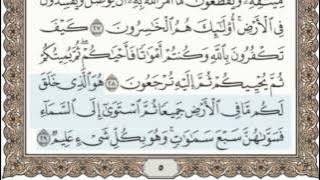 مِيثَٰقِهِۦ وَيَقْطَعُونَ مَآ أَمَرَ ٱللَّهُ بِهِۦٓ أَن يُوصَلَ وَيُفْسِدُونَ
فِى ٱلْأَرْضِ ۚ أُو۟لَٰٓئِكَ هُمُ ٱلْخَٰسِرُونَ ٢٧ كَيْفَ
تَكْفُرُونَ بِٱللَّهِ وَكُنتُمْ أَمْوَٰتًا فَأَحْيَٰكُمْ ۖ ثُمَّ يُمِيتُكُمْ
ثُمَّ يُحْيِيكُمْ ثُمَّ إِلَيْهِ تُرْجَعُونَ ٢٨ هُوَ ٱلَّذِى خَلَقَ
لَكُم مَّا فِى ٱلْأَرْضِ جَمِيعًا ثُمَّ ٱسْتَوَىٰٓ إِلَى ٱلسَّمَآءِ
فَسَوَّىٰهُنَّ سَبْعَ سَمَٰوَٰتٍ ۚ وَهُوَ بِكُلِّ شَىْءٍ عَلِيمٌ ٢٩
٥